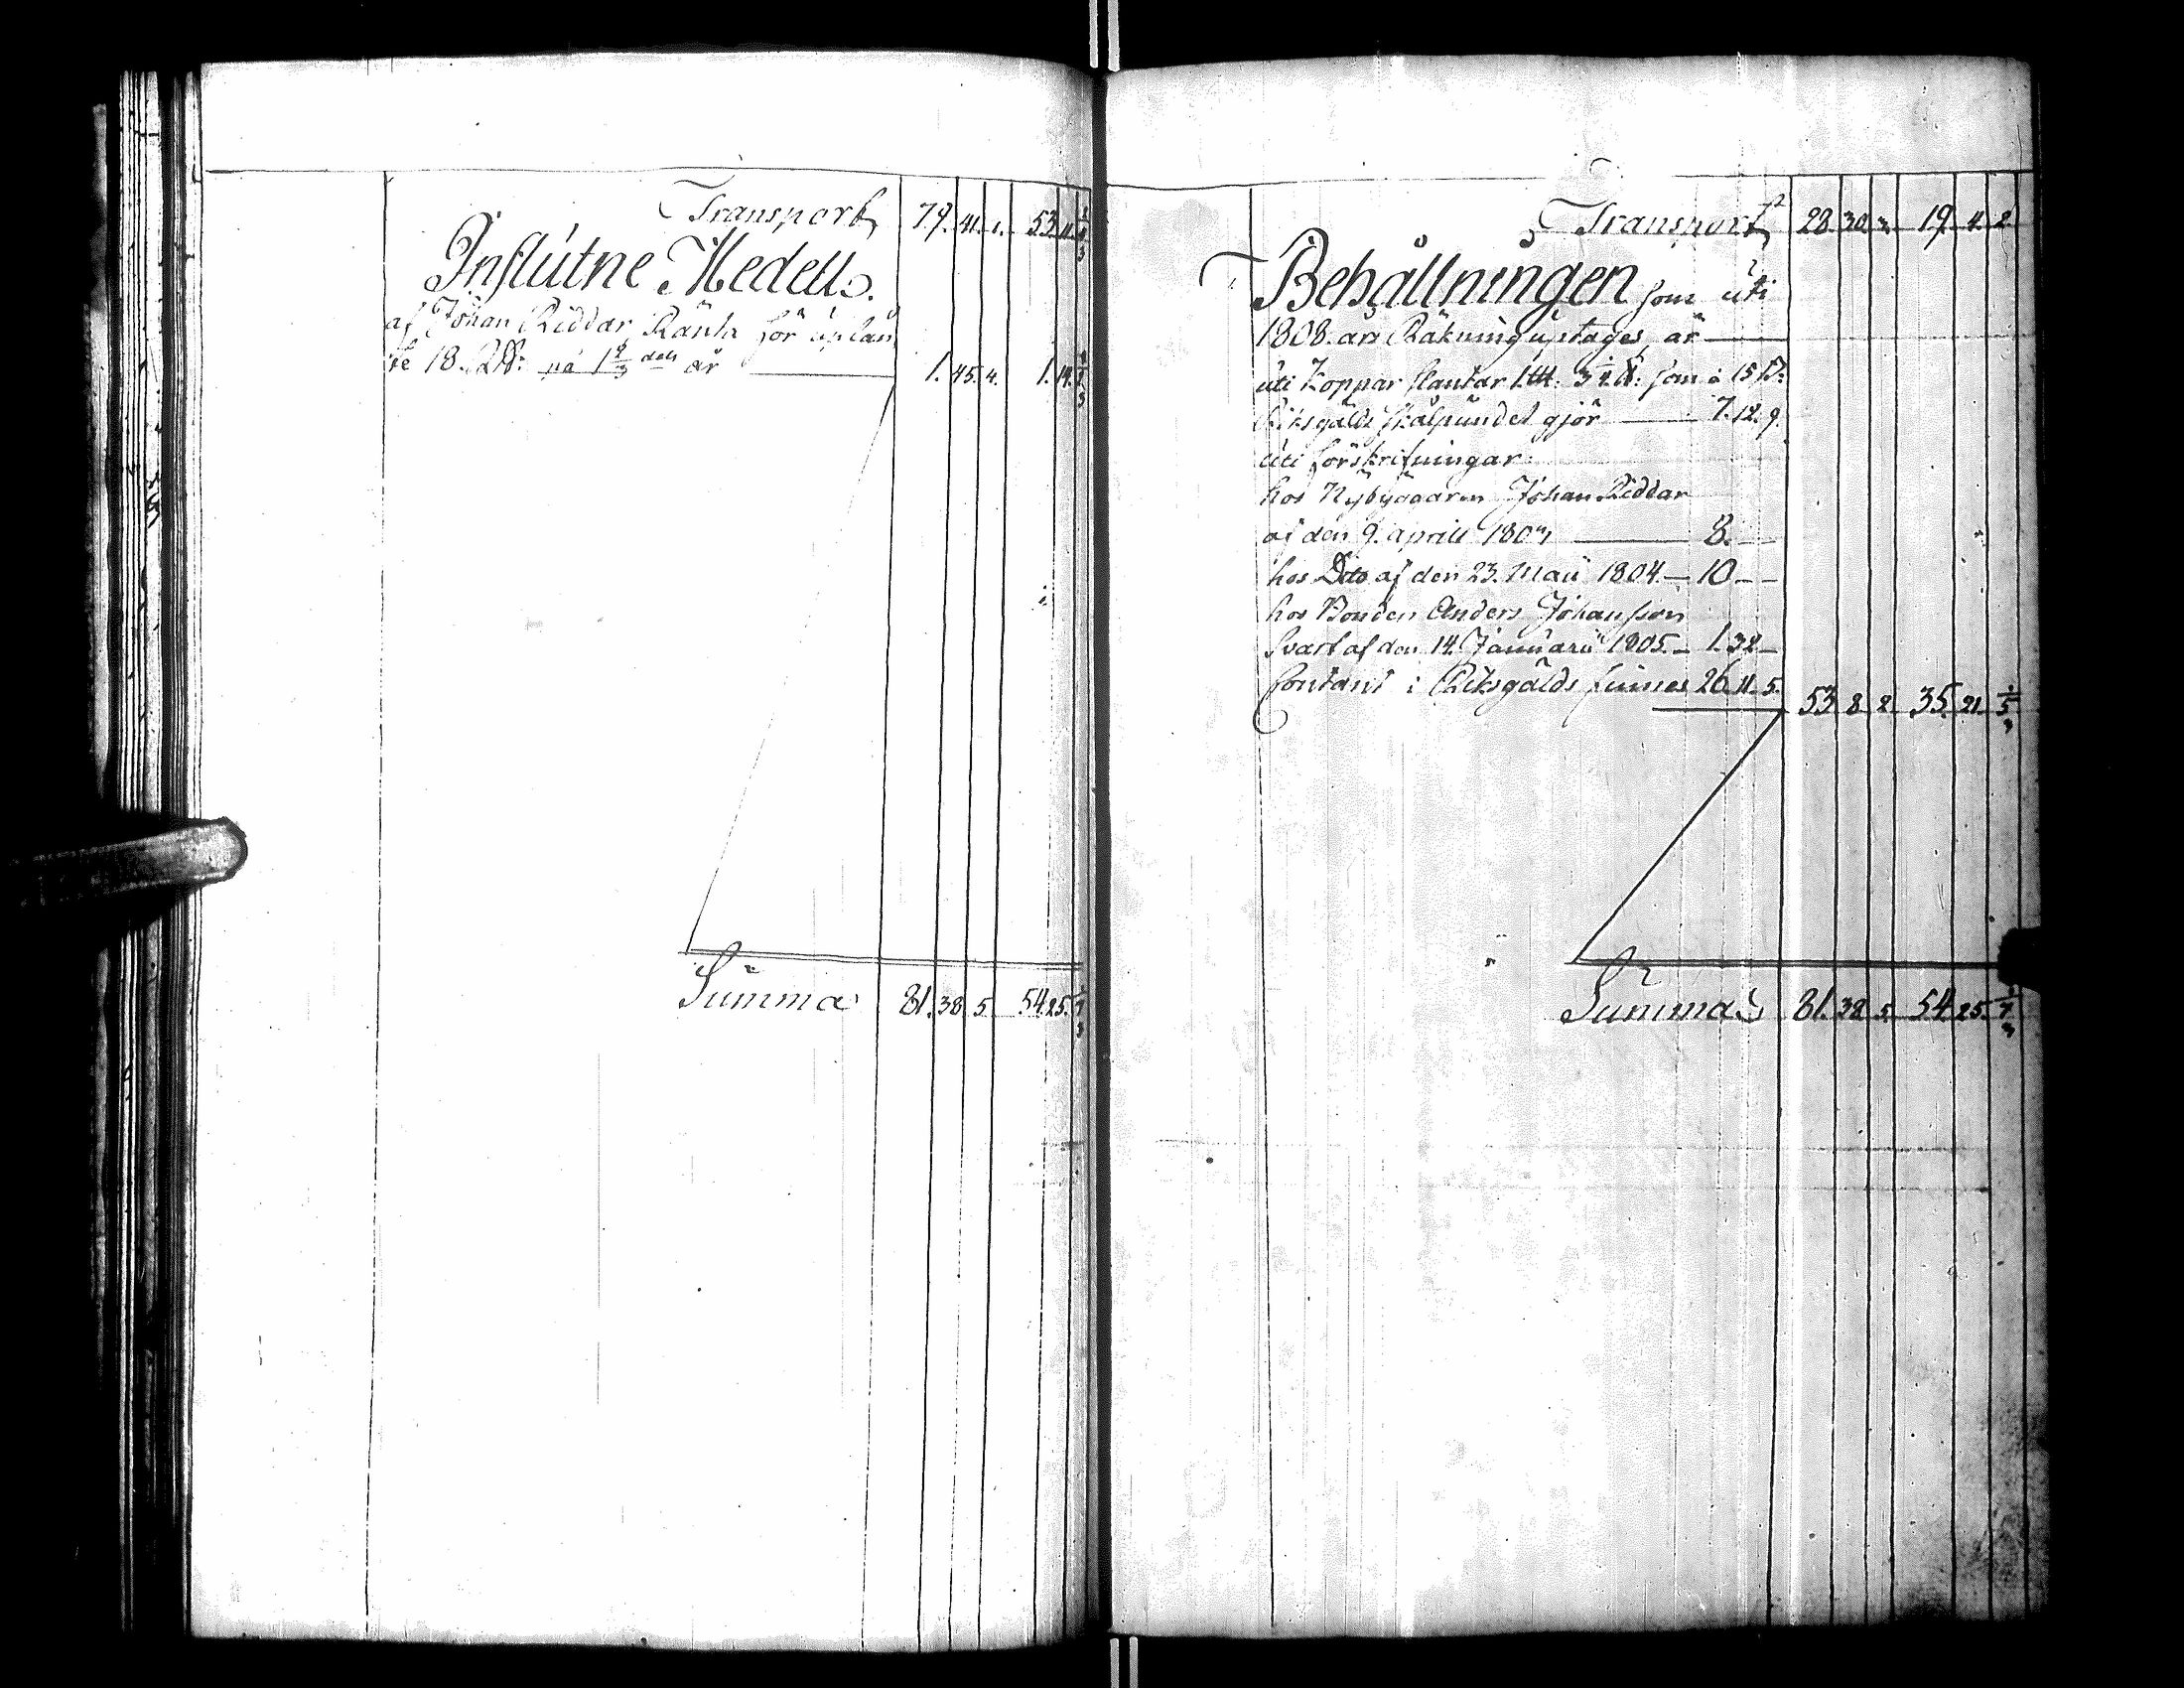 Transport 79. 41. 1. 53. 11.
Influtne Medell.
af Johan Riddar Ränta för uplån
te 18. Rd: på 1 2/3 dels år 1. 45. 4. 1. 14.
Summa 81. 38. 5. 54. 25. 7
Transport 28. 30. 3. 19. 4. 2.
Behållningen som uti
1808. års Räkning uptages är
uti Koppar slantar 1. som à 15 ß:
Riksgälds skålpundet gjör 7. 12. 9.
uti förskrifningar:
hos Nybyggaren Johan Riddar
af den 9. aprill 8.
hos Dito af den 23. Maii 1804. 10
hos Bonden Anders Johansson
Svart af den 14. Januarii 1805. 1. 32
Contant i Riksgälds finnes 26. 11. 5. 53. 8. 2. 35. 21. 5
Summa 81. 38. 5. 54. 25. 7